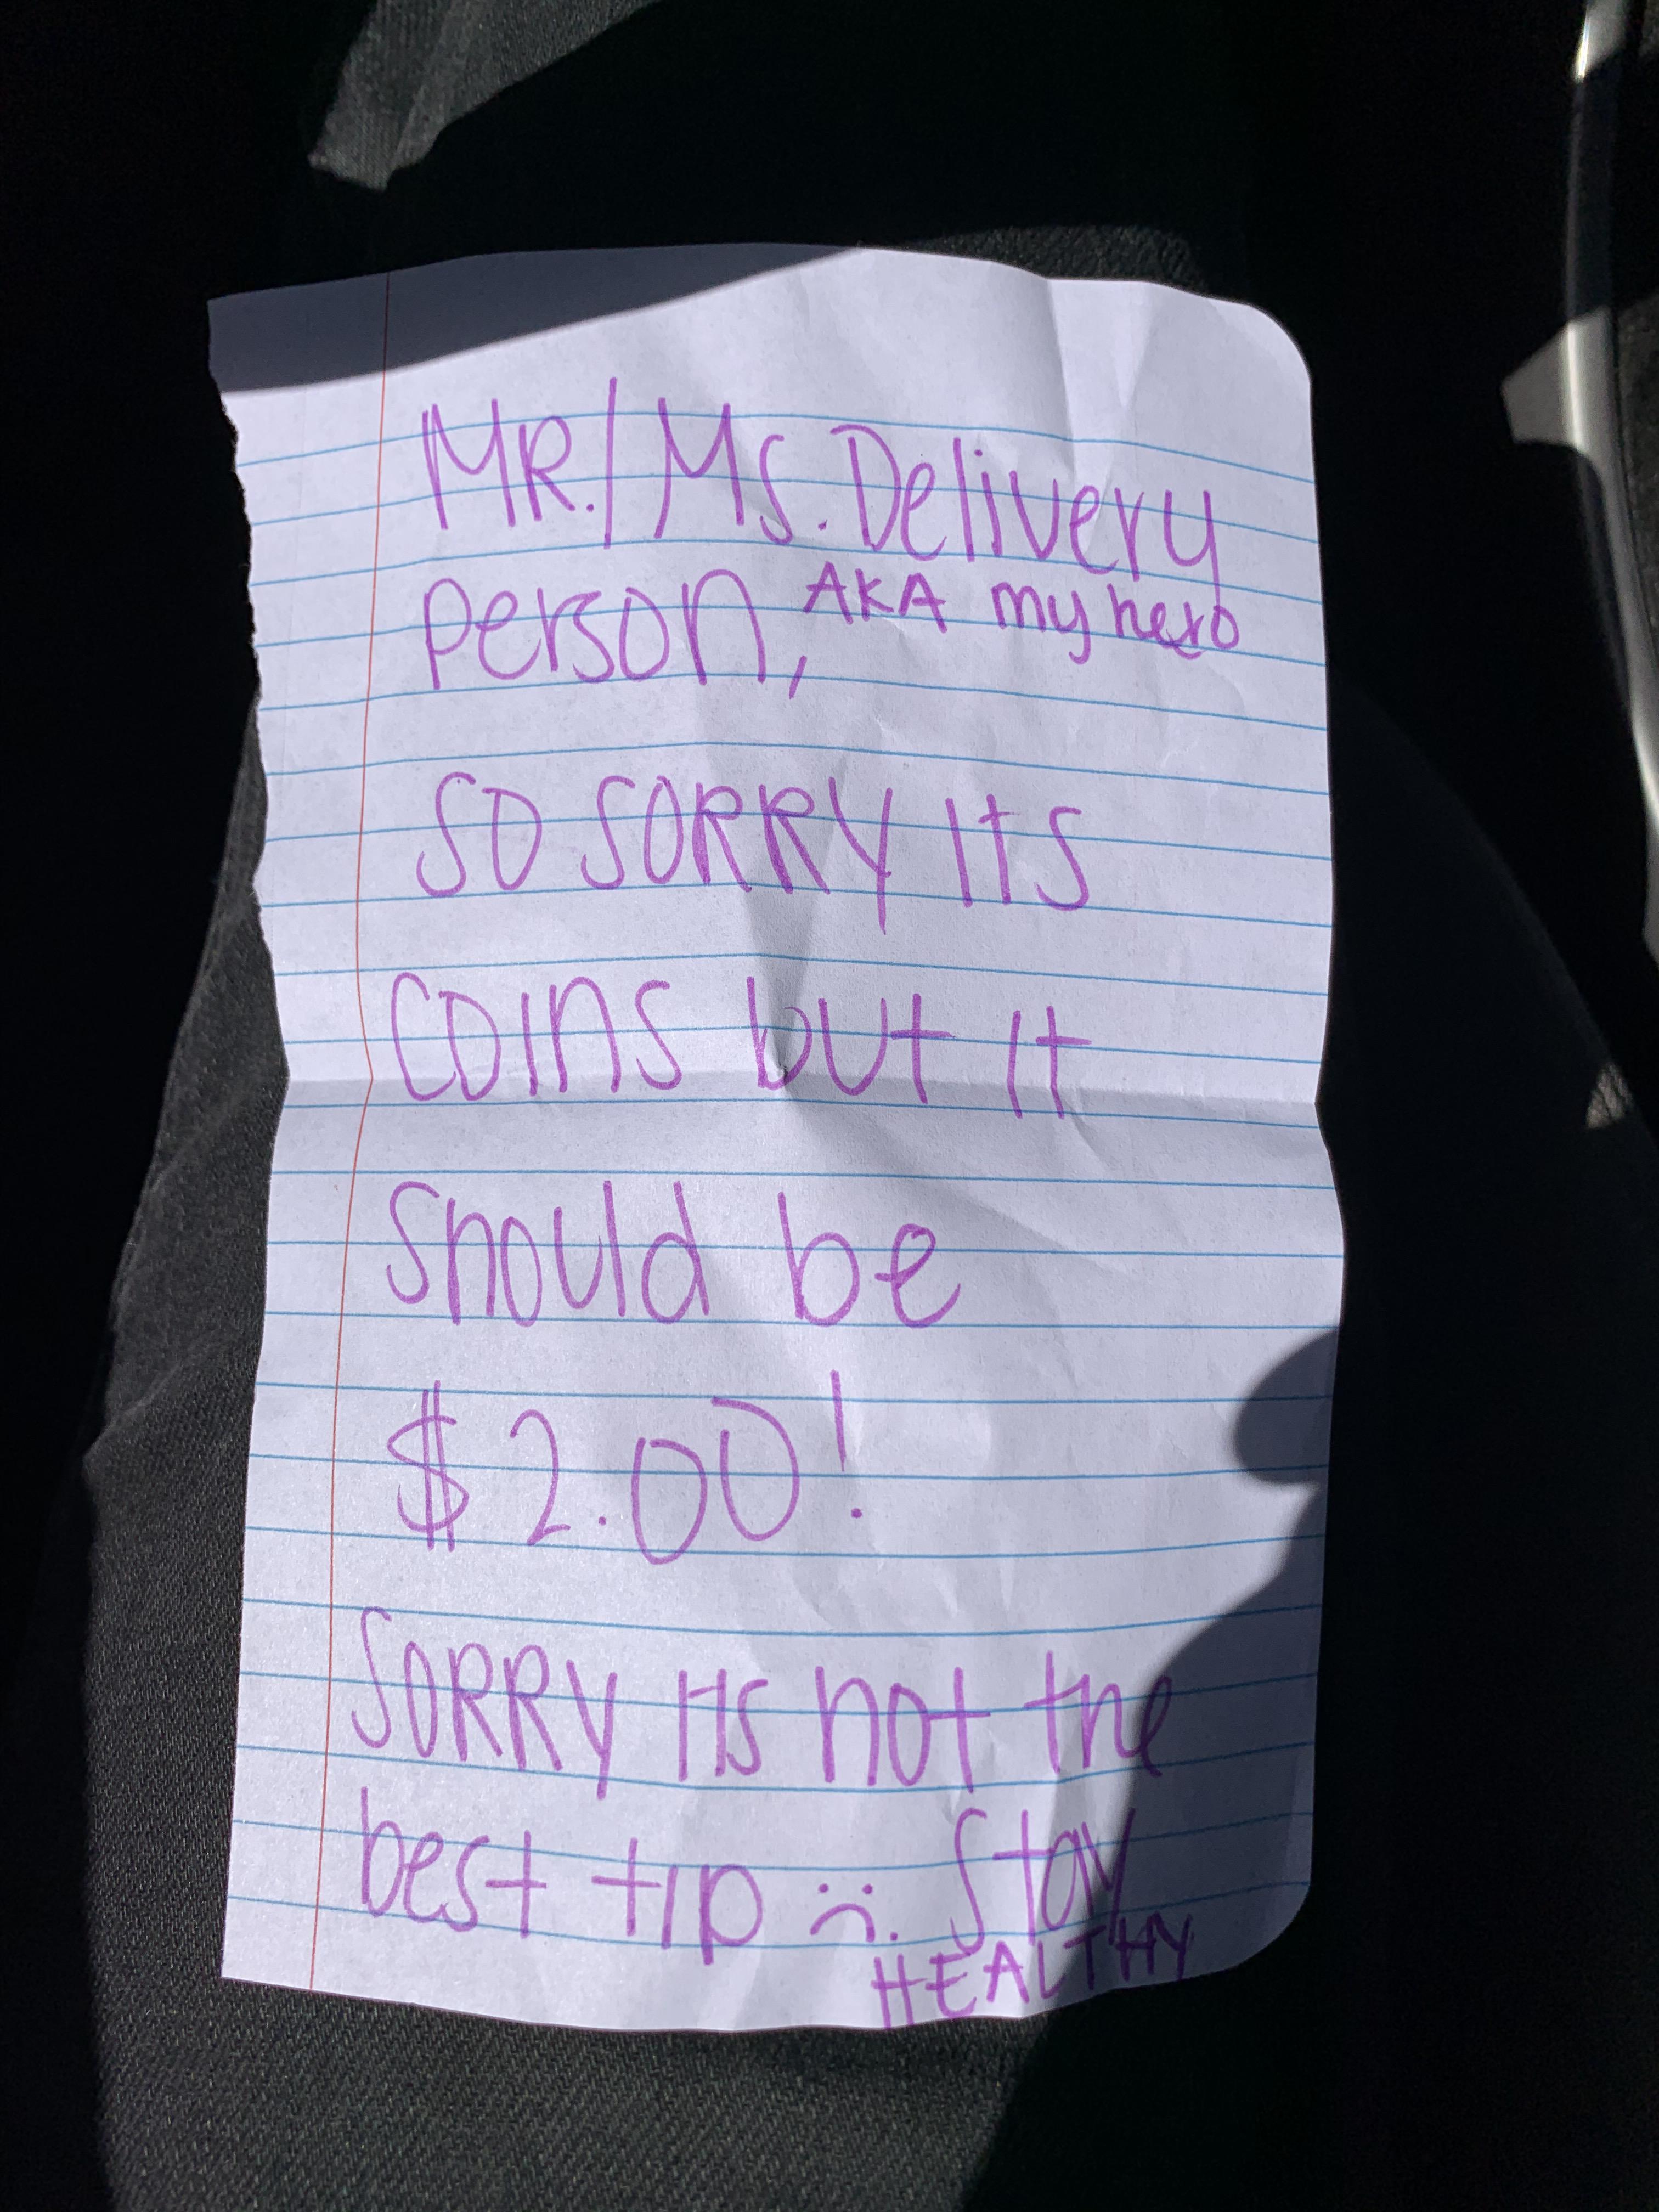 MR./Ms. Delivery
Person, AKA my hero
SO SORRY Its
COINS but It
Should be
$2.00!
SORRY Its not the
best tip :(. Stay
HEALTHY